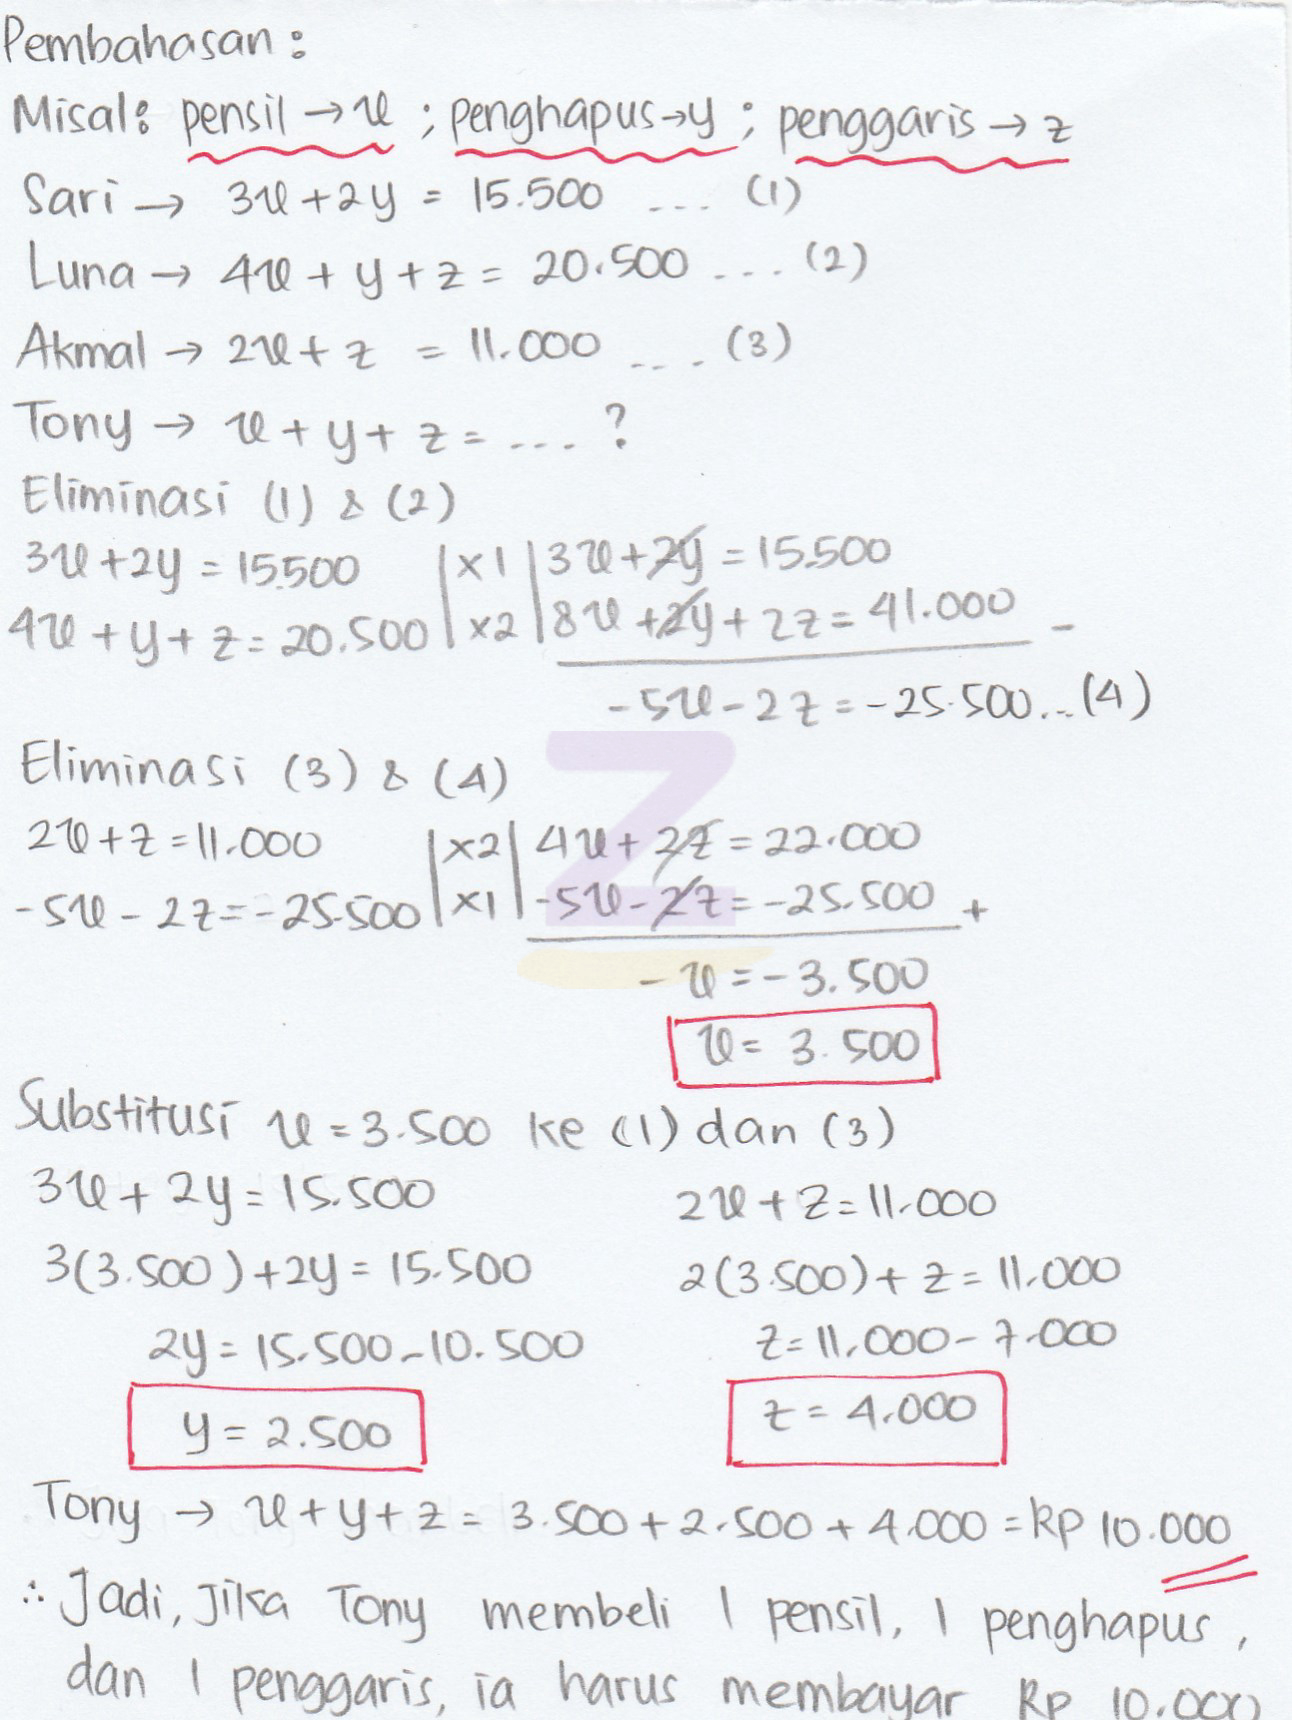 Pembahasan :
Misal: pensil → x ; penghapus → y ; penggaris → z
Sari → 3x + 2y = 15.500 .... (1)
Luna → 4x + y + z = 20.500 .... (2)
Akmal → 2x + z = 11.000 .... (3)
Tony → x + y + z = .... ?
Eliminasi (1) & (2)
3x + 2y = 15.500 | x1 | 3x + 2y = 15.500
4x + y + z = 20.500 | x2 | 8x + 2y + 2z = 41.000 -
-5x - 2z = -25.500... (4)
Eliminasi (3) & (4)
2x + z = 11.000 | x2 | 4x + 2z = 22.000
-5x - 2z = -25.500 | x1 | -5x - 2z = -25.500 +
- x = - 3.500
x = 3.500
Substitusi x = 3.500 ke (1) dan (3)
3x + 2y = 15.500 2x + z = 11.000
3(3.500) + 2y = 15.500 2(3.500) + z = 11.000
2y = 15.500 - 10.500 z = 11.000 - 7.000
y = 2.500 z = 4.000
Tony → x + y + z = 3.500 + 2.500 + 4.000 = Rp 10.000
∴ Jadi, Jika Tony membeli 1 pensil, 1 penghapus,
dan 1 penggaris, ia harus membayar Rp 10.000
Z